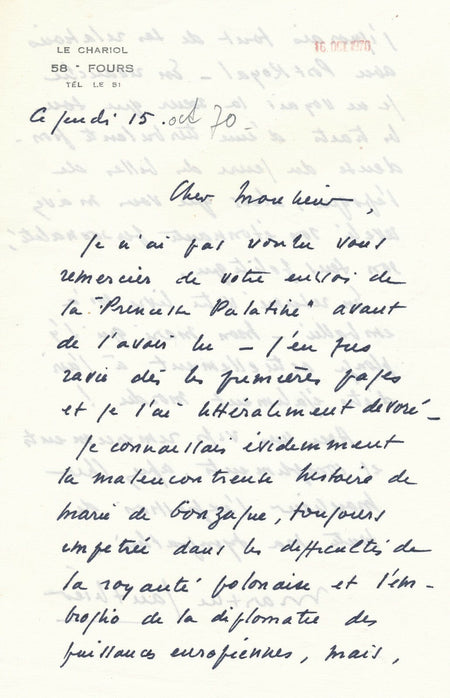 LE CHARIOL
58 - FOURS
TÉL. LE 51
16 OCT 1970
Ce jeudi 15 oct 70
Cher Monsieur,
Je n'ai pas voulu vous
remercier de votre envoi de
la "Princesse Palatine" avant
de l'avoir lu — J'en fus
ravie dès les premières pages
et je l'ai littéralement dévoré —
Je connaissais évidemment
la malencontreuse histoire de
Marie de Gonzague, toujours
empetrée dans les difficultés de
la royauté polonaise et l'em-
broglio de la diplomatie des
puissances européennes, mais,